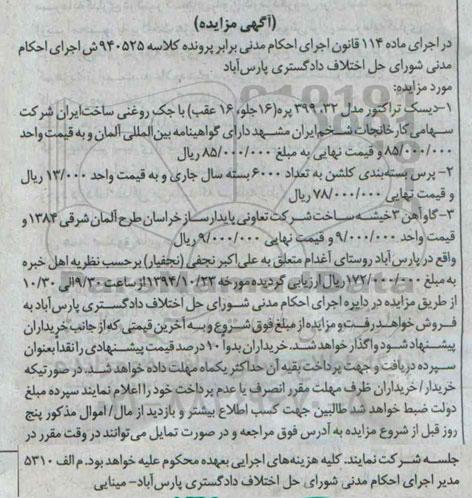 (آگهی مزایده)
در اجرای ماده ۱۱۴ قانون اجرای احکام مدنی برابر پرونده کلاسه ۹۴۰۵۲۵ ش اجرای احکام
مدنی شورای حل اختلاف دادگستری پارس‌آباد
مورد مزایده:
۱-دیسک تراکتور مدل ۳۹۹.۳۲ پره (۱۶ جلو، ۱۶ عقب) با جک روغنی ساخت ایران شرکت
سهامی کارخانجات شخم ایران مشهد دارای گواهینامه بین‌المللی آلمان و به قیمت واحد
۸۵/۰۰۰/۰۰۰ و قیمت نهایی به مبلغ ۸۵/۰۰۰/۰۰۰ ریال
۲- پرس بسته‌بندی کلشن به تعداد ۶۰۰۰ بسته سال جاری و به قیمت واحد ۱۳/۰۰۰ ریال
و قیمت نهایی ۷۸/۰۰۰/۰۰۰ ریال
۳-گاوآهن ۳خیشه ساخت شرکت تعاونی پایدارساز خراسان طرح آلمان شرقی ۱۳۸۴ و
قیمت واحد ۹/۰۰۰/۰۰۰ و قیمت نهایی ۹/۰۰۰/۰۰۰ ریال
واقع در پارس‌آباد روستای آغدام متعلق به علی‌اکبر نجفی (نجفیار) برحسب نظریه اهل خبره
به مبلغ ۱۷۲/۰۰۰/۰۰۰ ریال ارزیابی گردیده مورخه ۱۳۹۴/۱۰/۲۳ از ساعت ۹/۳۰ الی ۱۰/۳۰
از طریق مزایده در دایره اجرای احکام مدنی شورای حل اختلاف دادگستری پارس‌آباد به
فروش خواهد رفت و مزایده از مبلغ فوق شروع و به آخرین قیمتی که از جانب خریداران
پیشنهاد شود واگذار خواهد شد. خریداران بدوا ۱۰ درصد قیمت پیشنهادی را نقدا بعنوان
سپرده دریافت و جهت پرداخت بقیه آن حداکثر یکماه مهلت داده خواهد شد. در صورتیکه
خریدار/ خریداران ظرف مهلت مقرر انصراف یا عدم پرداخت خود را اعلام نمایند سپرده مبلغ
دولت ضبط خواهد شد طالبین جهت کسب اطلاع بیشتر و بازدید از مال/ اموال مذکور پنج
روز قبل از شروع مزایده به آدرس فوق مراجعه و در صورت تمایل می‌توانند در وقت مقرر در
جلسه شرکت نمایند. کلیه هزینه‌های اجرایی بعهده محکوم علیه خواهد بود. م الف ۵۳۱۰
مدیر اجرای احکام مدنی شورای حل اختلاف دادگستری پارس‌آباد- مینایی